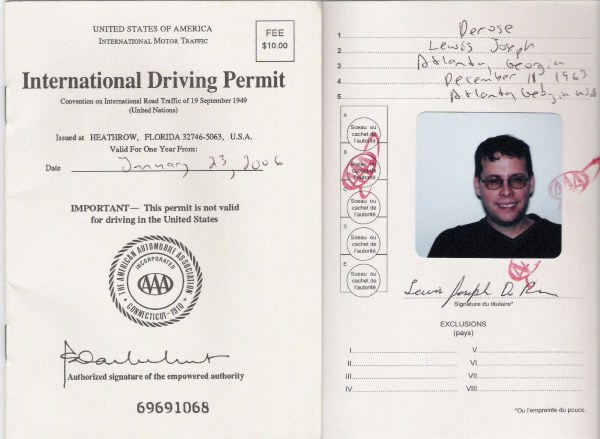 UNITED STATES OF AMERICA
INTERNATIONAL MOTOR TRAFFIC
FEE
$10.00
International Driving Permit
Convention on International Road Traffic of 19 September 1949
(United Nations)
Issued at HEATHROW, FLORIDA 32746-5063, U.S.A.
Valid For One Year From:
Date January 23, 2006
IMPORTANT— This permit is not valid
for driving in the United States
THE AMERICAN AUTOMOBILE ASSOCIATION
INCORPORATED
AAA
CONNECTICUT-1910
Authorized signature of the empowered authority
69691068
1 Derose
2 Lewis Joseph
3 Atlanta, Georgia
4 December 11 1963
5 Atlanta, Georgia
A
Sceau ou
cachet de
l'autorité
B
AAA
Sceau ou
cachet de
l'autorité
Sceau ou
cachet de
l'autorité
D
Sceau ou
cachet de
l'autorité
E
Sceau ou
cachet de
l'autorité
AAA
AAA
Lewis Joseph De
Signature du titulaire*
EXCLUSIONS
(pays)
I V
II VI
III VII
IV VIII
*Ou l'empreinte du pouce